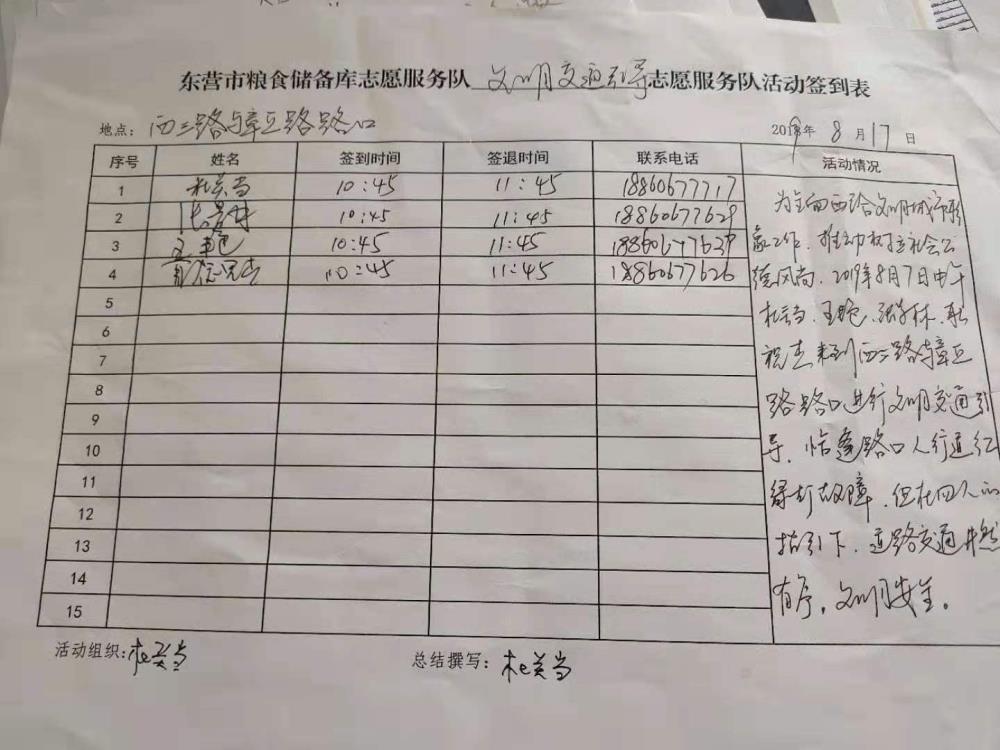 东营市粮食储备库志愿服务队 文明交通引导志愿服务队活动签到表
地点：西三路与章丘路路口 2019年 8 月 17 日
序号 姓名 签到时间 签退时间 联系电话 活动情况
1 10:45 11:45 18860677717
2 10:45 11:45 18860677629
3 10:45 11:45 18860677639
4 10:45 11:45 18860677626
5
6
7
8
9
10
11
12
13
14
15
为全面配合文明城市创
工作，推动树立社会公
德风尚，2019年8月7日中午
来到西三路与章丘
路路口进行文明交通引
导，恰逢路口人行道红
绿灯故障，但在四人的
指引下，道路交通井然
有序，文明安全。
活动组织： 总结撰写：